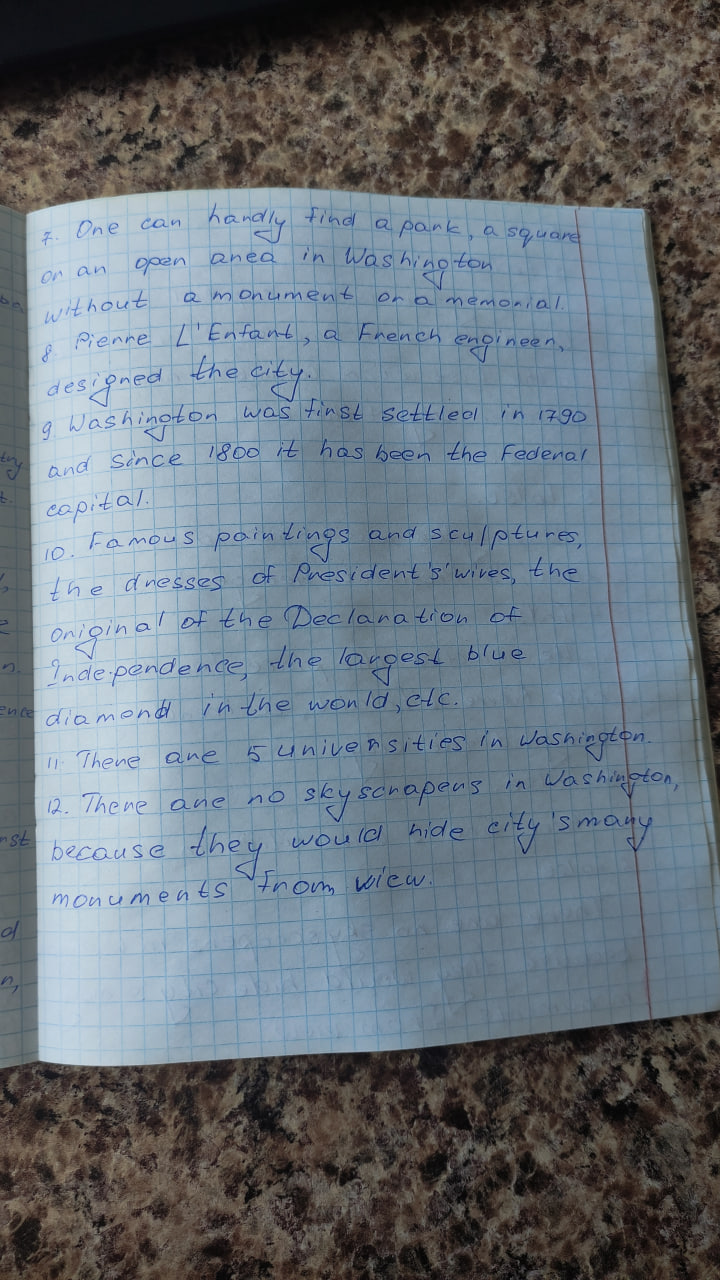 7. One can hardly find a park, a square
or an open area in Washington
without a monument or a memorial.
8. Pierre L'Enfant, a French engineer,
designed the city.
9. Washington was first settled in 1790
and since 1800 it has been the Federal
capital.
10. Famous paintings and sculptures,
the dresses of President's' wives, the
original of the Declaration of
Independence, the largest blue
diamond in the world, etc.
11. There are 5 universities in Washington.
12. There are no skyscrapers in Washington,
because they would hide city's many
monuments from wiew.